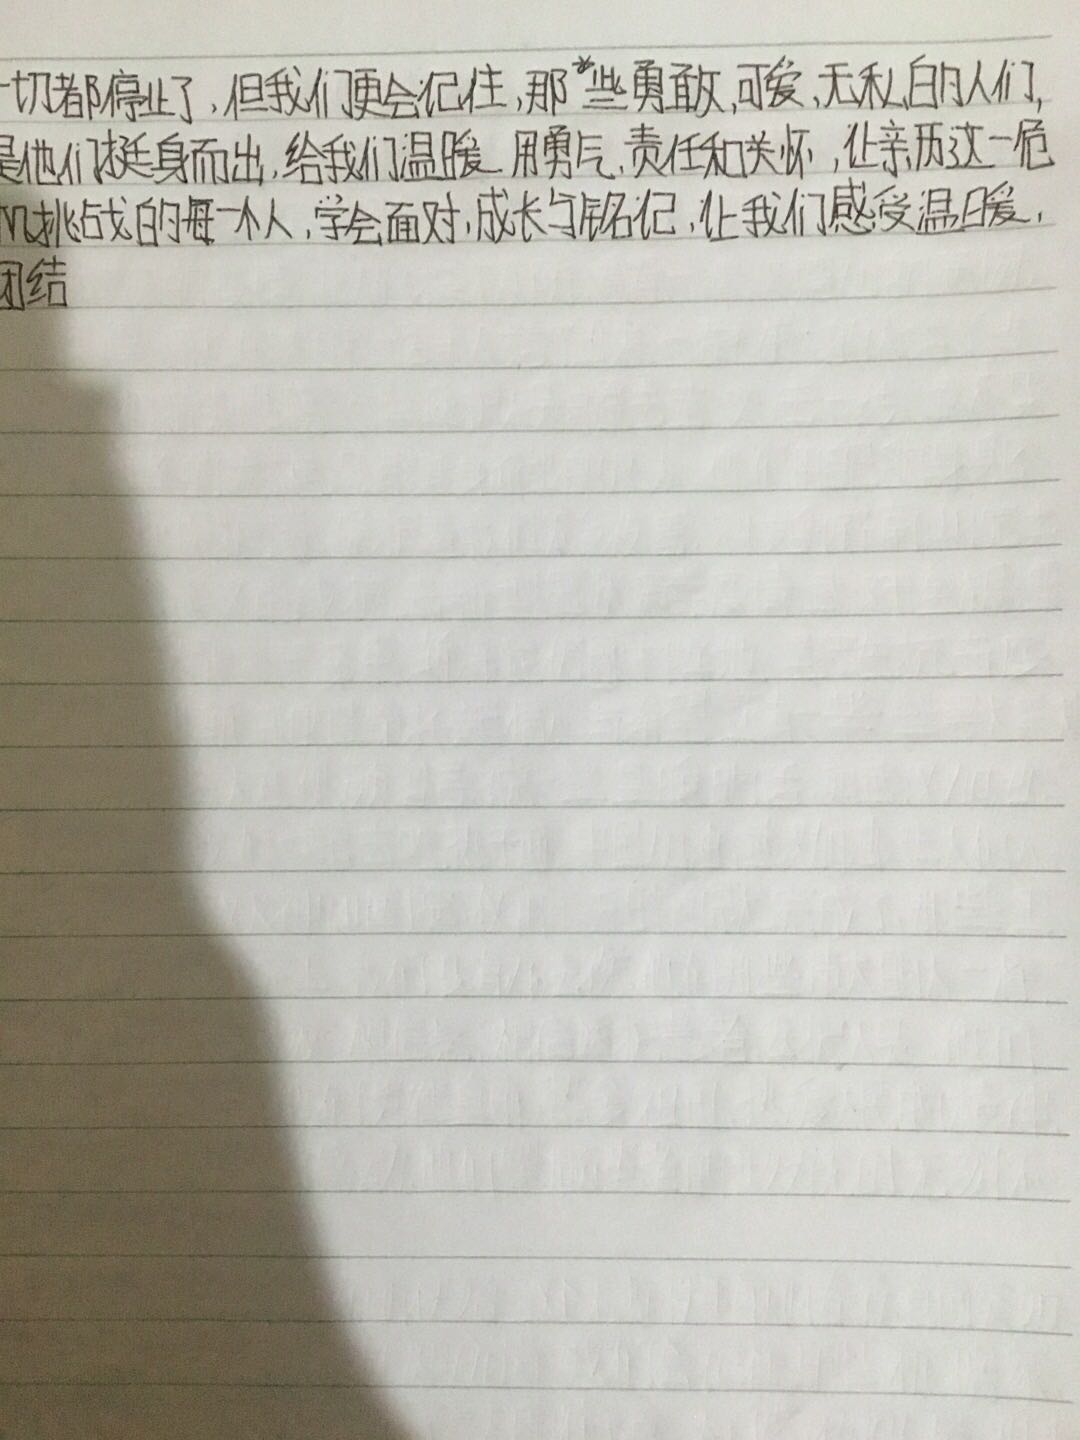 一切都停止了,但我们更会记住,那些勇敢,可爱,无私的人们,
是他们挺身而出,给我们温暖.用勇气,责任和关怀,让亲历这一危
机挑战的每一个人,学会面对,成长与铭记,让我们感受温暖,
团结